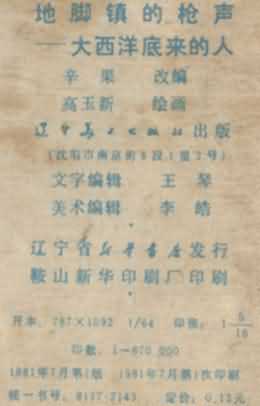 地脚镇的枪声
——大西洋底来的人
辛果 改编
高玉新 绘画
辽宁美术出版社出版
(沈阳市南京街6段1里2号)
文字编辑 王琴
美术编辑 李皓
辽宁省新华书店发行
鞍山新华印刷厂印刷
开本: 787×1092 1/64 印张: 1 5/16
印数: 1—870,000
1981年7月第1版 1981年7月第1次印刷
统一书号: 8117·2143 定价: 0.13元